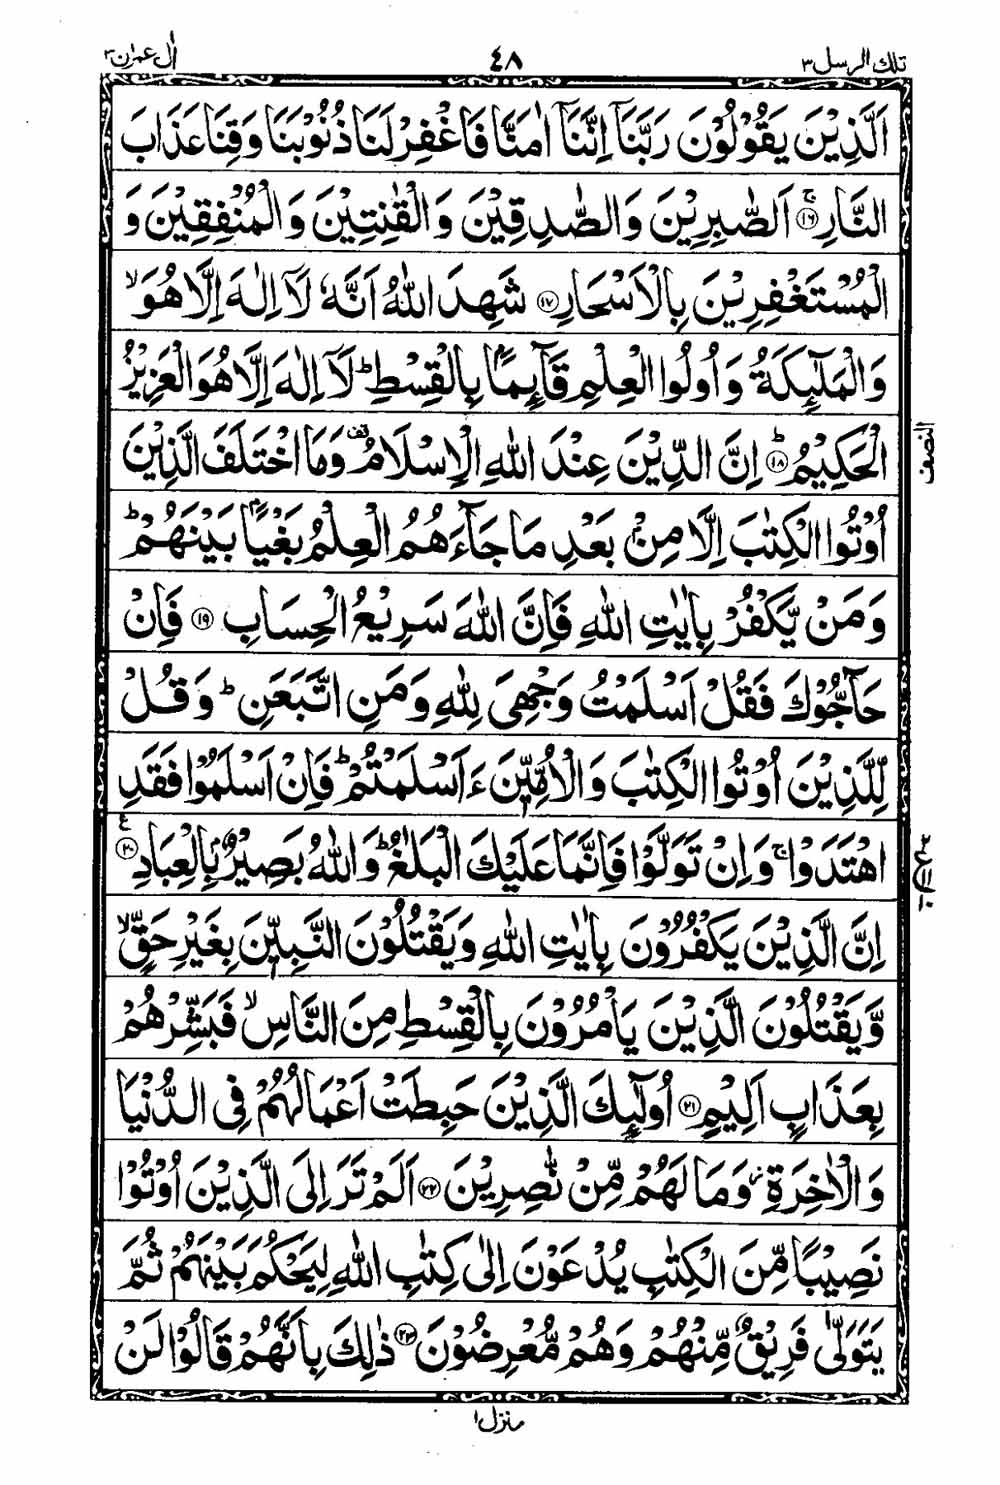 تلك الرسل ٣
٤٨
اٰل عمرٰن ٣
اَلَّذِيْنَ يَقُوْلُوْنَ رَبَّنَآ اِنَّنَآ اٰمَنَّا فَاغْفِرْ لَنَا ذُنُوْبَنَا وَقِنَا عَذَابَ
النَّارِ ۚ‏﴿۱۶﴾ اَلصّٰبِرِيْنَ وَالصّٰدِقِيْنَ وَالْقٰنِتِيْنَ وَالْمُنْفِقِيْنَ وَ
الْمُسْتَغْفِرِيْنَ بِالْاَسْحَارِ ﴿۱۷﴾ شَهِدَ اللّٰهُ اَنَّهٗ لَآ اِلٰهَ اِلَّا هُوَ ۙ
وَالْمَلٰٓئِكَةُ وَاُولُوا الْعِلْمِ قَآئِمًاۢ بِالْقِسْطِ ؕ لَآ اِلٰهَ اِلَّا هُوَ الْعَزِيْزُ
الْحَكِيْمُ ؕ﴿۱۸﴾ اِنَّ الدِّيْنَ عِنْدَ اللّٰهِ الْاِسْلَامُ قف وَمَا اخْتَلَفَ الَّذِيْنَ
النصف
اُوْتُوا الْكِتٰبَ اِلَّا مِنْۢ بَعْدِ مَا جَآءَهُمُ الْعِلْمُ بَغْيًاۢ بَيْنَهُمْ ؕ
وَمَنْ يَّكْفُرْ بِاٰيٰتِ اللّٰهِ فَاِنَّ اللّٰهَ سَرِيْعُ الْحِسَابِ ﴿۱۹﴾ فَاِنْ
حَآجُّوْكَ فَقُلْ اَسْلَمْتُ وَجْهِىَ لِلّٰهِ وَمَنِ اتَّبَعَنِ ؕ وَقُلْ
لِّلَّذِيْنَ اُوْتُوا الْكِتٰبَ وَالْاُمِّيّٖنَ ءَاَسْلَمْتُمْ ؕ فَاِنْ اَسْلَمُوْا فَقَدِ
اهْتَدَوْا ۚ وَاِنْ تَوَلَّوْا فَاِنَّمَا عَلَيْكَ الْبَلٰغُ ؕ وَاللّٰهُ بَصِيْرٌۢ بِالْعِبَادِ ﴿۲۰﴾ ع
اِنَّ الَّذِيْنَ يَكْفُرُوْنَ بِاٰيٰتِ اللّٰهِ وَيَقْتُلُوْنَ النَّبِيّٖنَ بِغَيْرِ حَقٍّ ۙ
وَّيَقْتُلُوْنَ الَّذِيْنَ يَاْمُرُوْنَ بِالْقِسْطِ مِنَ النَّاسِ ۙ فَبَشِّرْهُمْ
بِعَذَابٍ اَلِيْمٍ ﴿۲۱﴾ اُولٰٓئِكَ الَّذِيْنَ حَبِطَتْ اَعْمَالُهُمْ فِى الدُّنْيَا
وَالْاٰخِرَةِ ز وَمَا لَهُمْ مِّنْ نّٰصِرِيْنَ ﴿۲۲﴾ اَلَمْ تَرَ اِلَى الَّذِيْنَ اُوْتُوْا
نَصِيْبًا مِّنَ الْكِتٰبِ يُدْعَوْنَ اِلٰى كِتٰبِ اللّٰهِ لِيَحْكُمَ بَيْنَهُمْ ثُمَّ
يَتَوَلّٰى فَرِيْقٌ مِّنْهُمْ وَهُمْ مُّعْرِضُوْنَ ﴿۲۳﴾ ذٰلِكَ بِاَنَّهُمْ قَالُوْا لَنْ
منزل ١